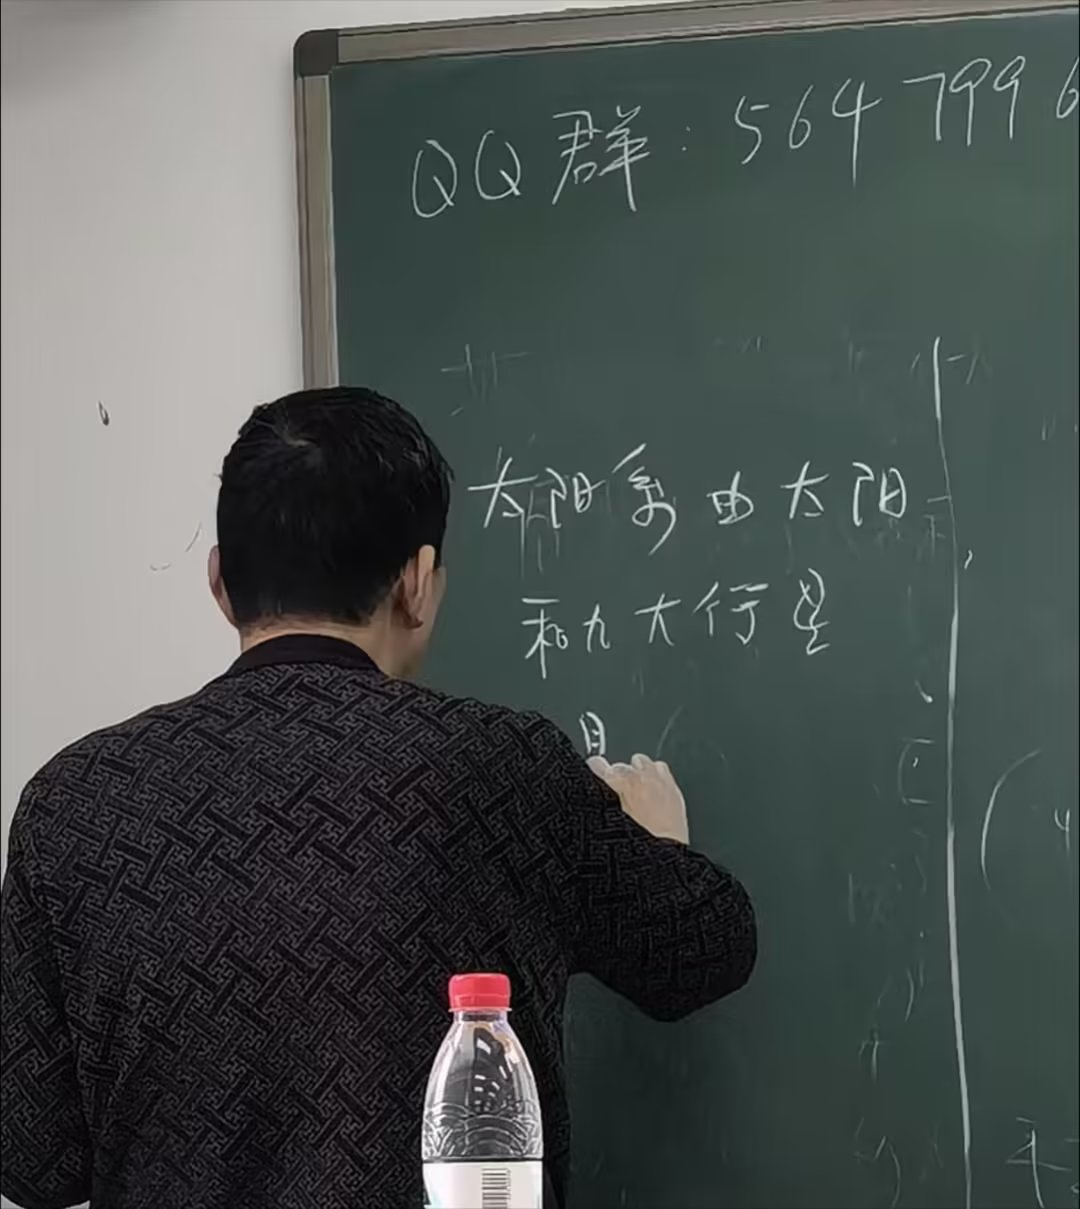 QQ群：564 799 6
太阳系由太阳
和九大行星